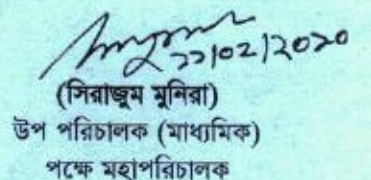 22/02/2020
(সিরাজুম মুনিরা)
উপ পরিচালক (মাধ্যমিক)
পক্ষে মহাপরিচালক